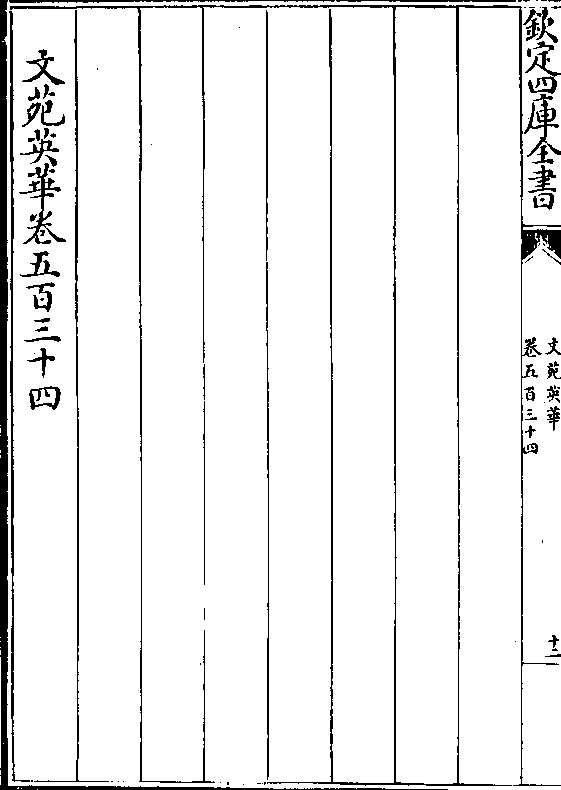 欽定四庫全書
文苑英華
卷五百三十四
十二
文苑英華卷五百三十四